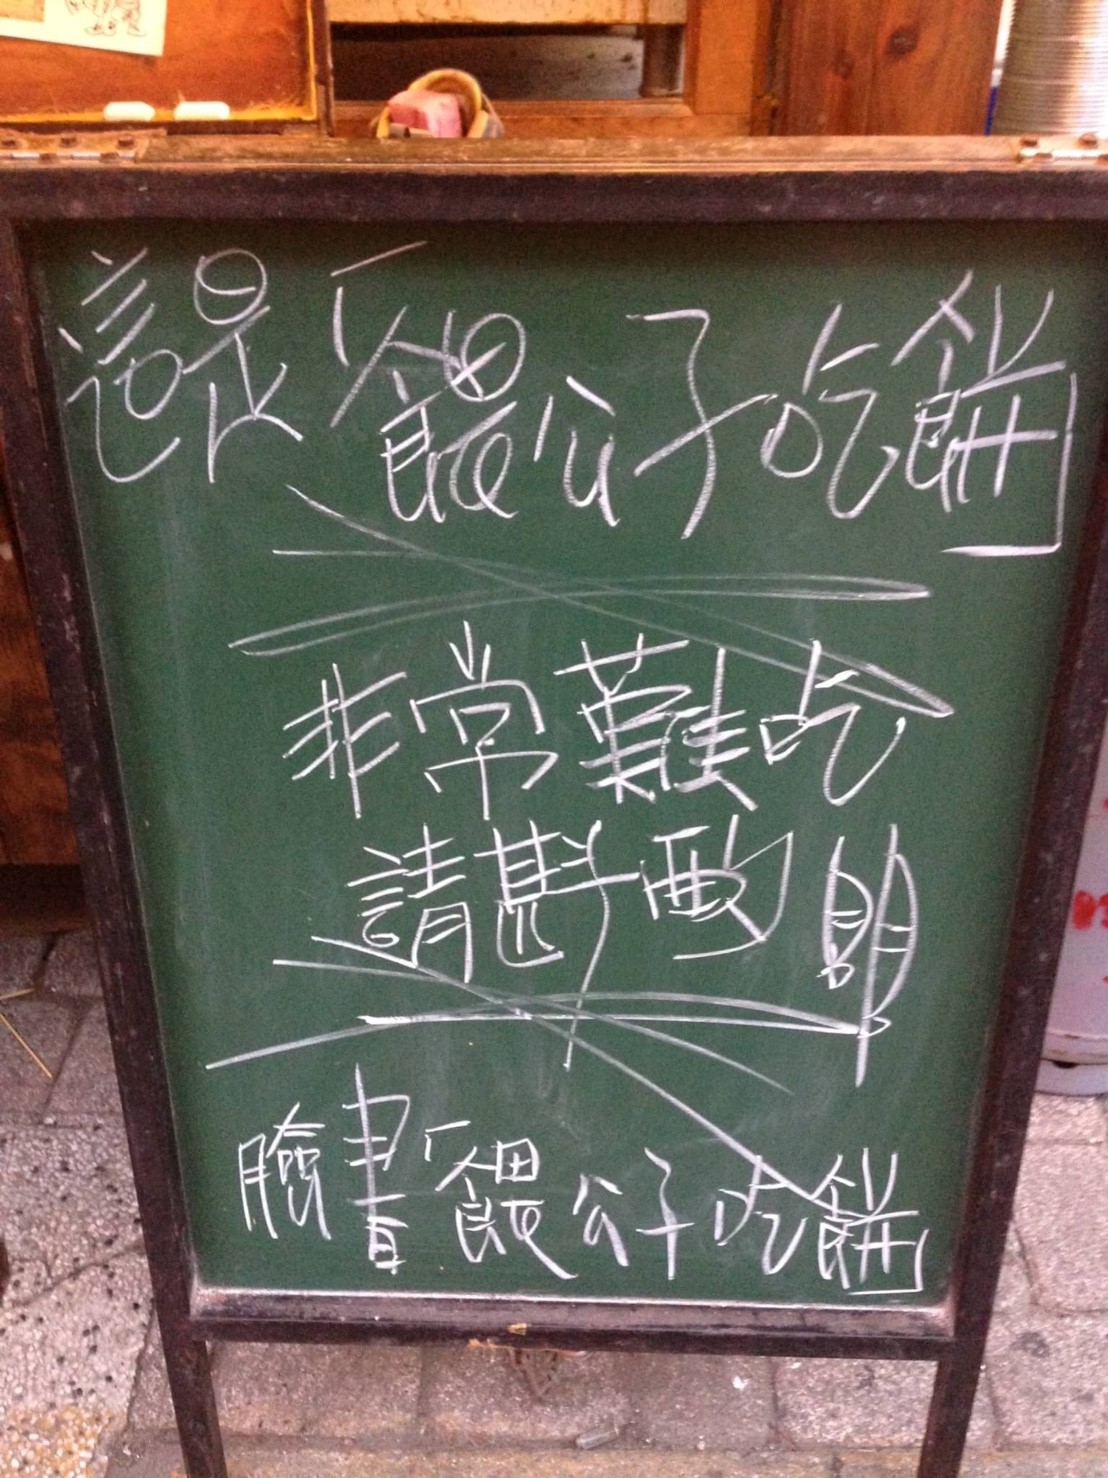 這是「餵公子吃餅」
非常難吃
請斟酌
臉書「餵公子吃餅」